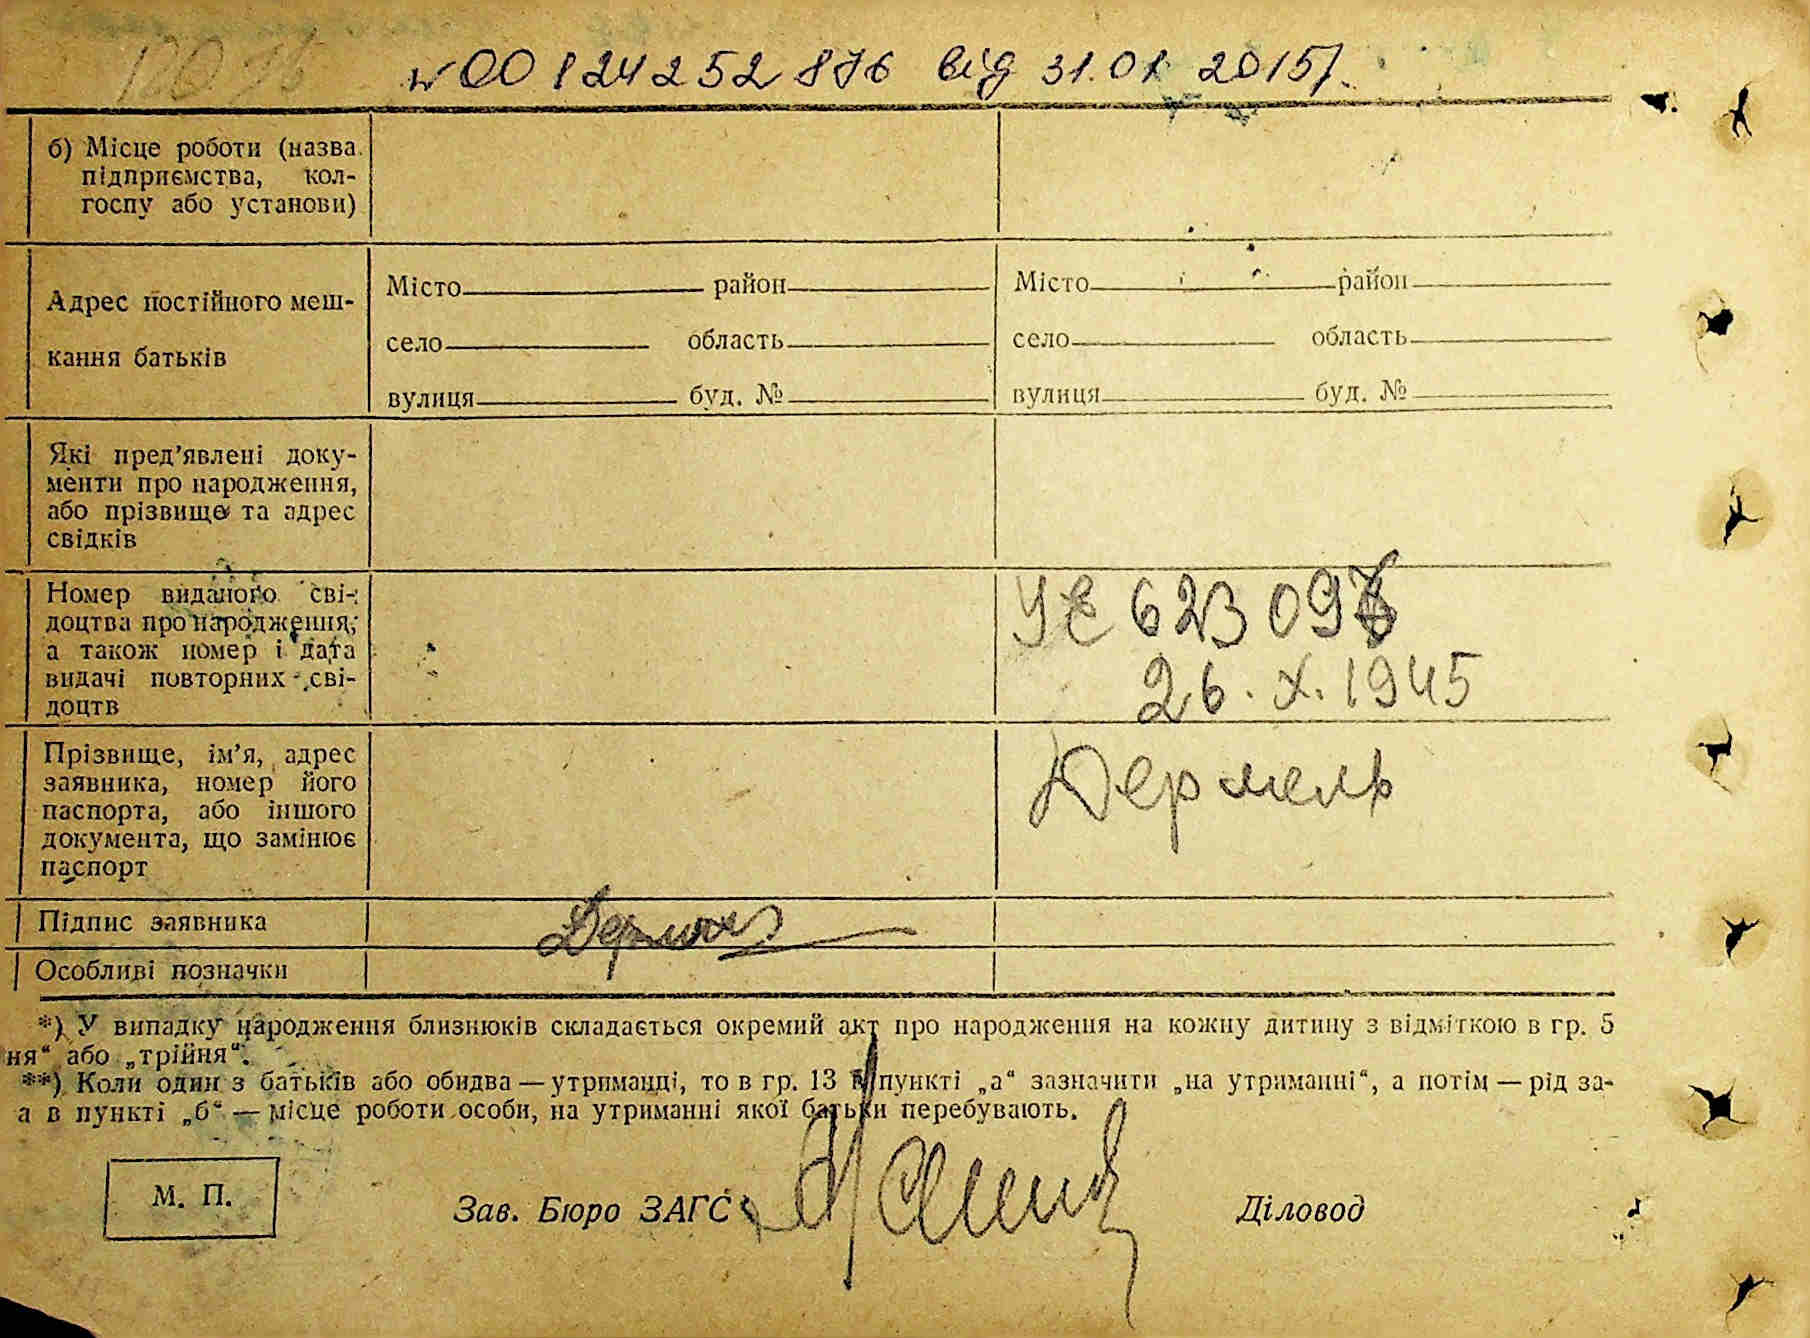 № 00124252876 від 31.01.2015р.
б) Місце роботи (назва
підприємства, кол-
госпу або установи)
Адрес постійного меш-
кання батьків
Місто район
село область
вулиця буд. №
Місто район
село область
вулиця буд. №
Які пред'явлені доку-
менти про народження,
або прізвище та адрес
свідків
Номер виданого сві-
доцтва про народження,
а також номер і дата
видачі повторних сві-
доцтв
УЕ 623 09
26. X. 1945
Прізвище, ім'я, адрес
заявника, номер його
паспорта, або іншого
документа, що замінює
паспорт
Підпис заявника
Особливі позначки
*) У випадку народження близнюків складається окремий акт про народження на кожну дитину з відміткою в гр. 5
ня" або „трійня".
**) Коли один з батьків або обидва — утриманці, то в гр. 13 в пункті „а" зазначити „на утриманні", а потім — рід за-
а в пункті „б" — місце роботи особи, на утриманні якої батьки перебувають.
М. П.
Зав. Бюро ЗАГС
Діловод